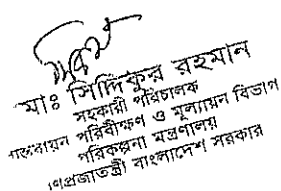 মোঃ সিদ্দিকুর রহমান
সহকারী পরিচালক
বাস্তবায়ন পরিবীক্ষণ ও মূল্যায়ন বিভাগ
পরিকল্পনা মন্ত্রণালয়
গণপ্রজাতন্ত্রী বাংলাদেশ সরকার